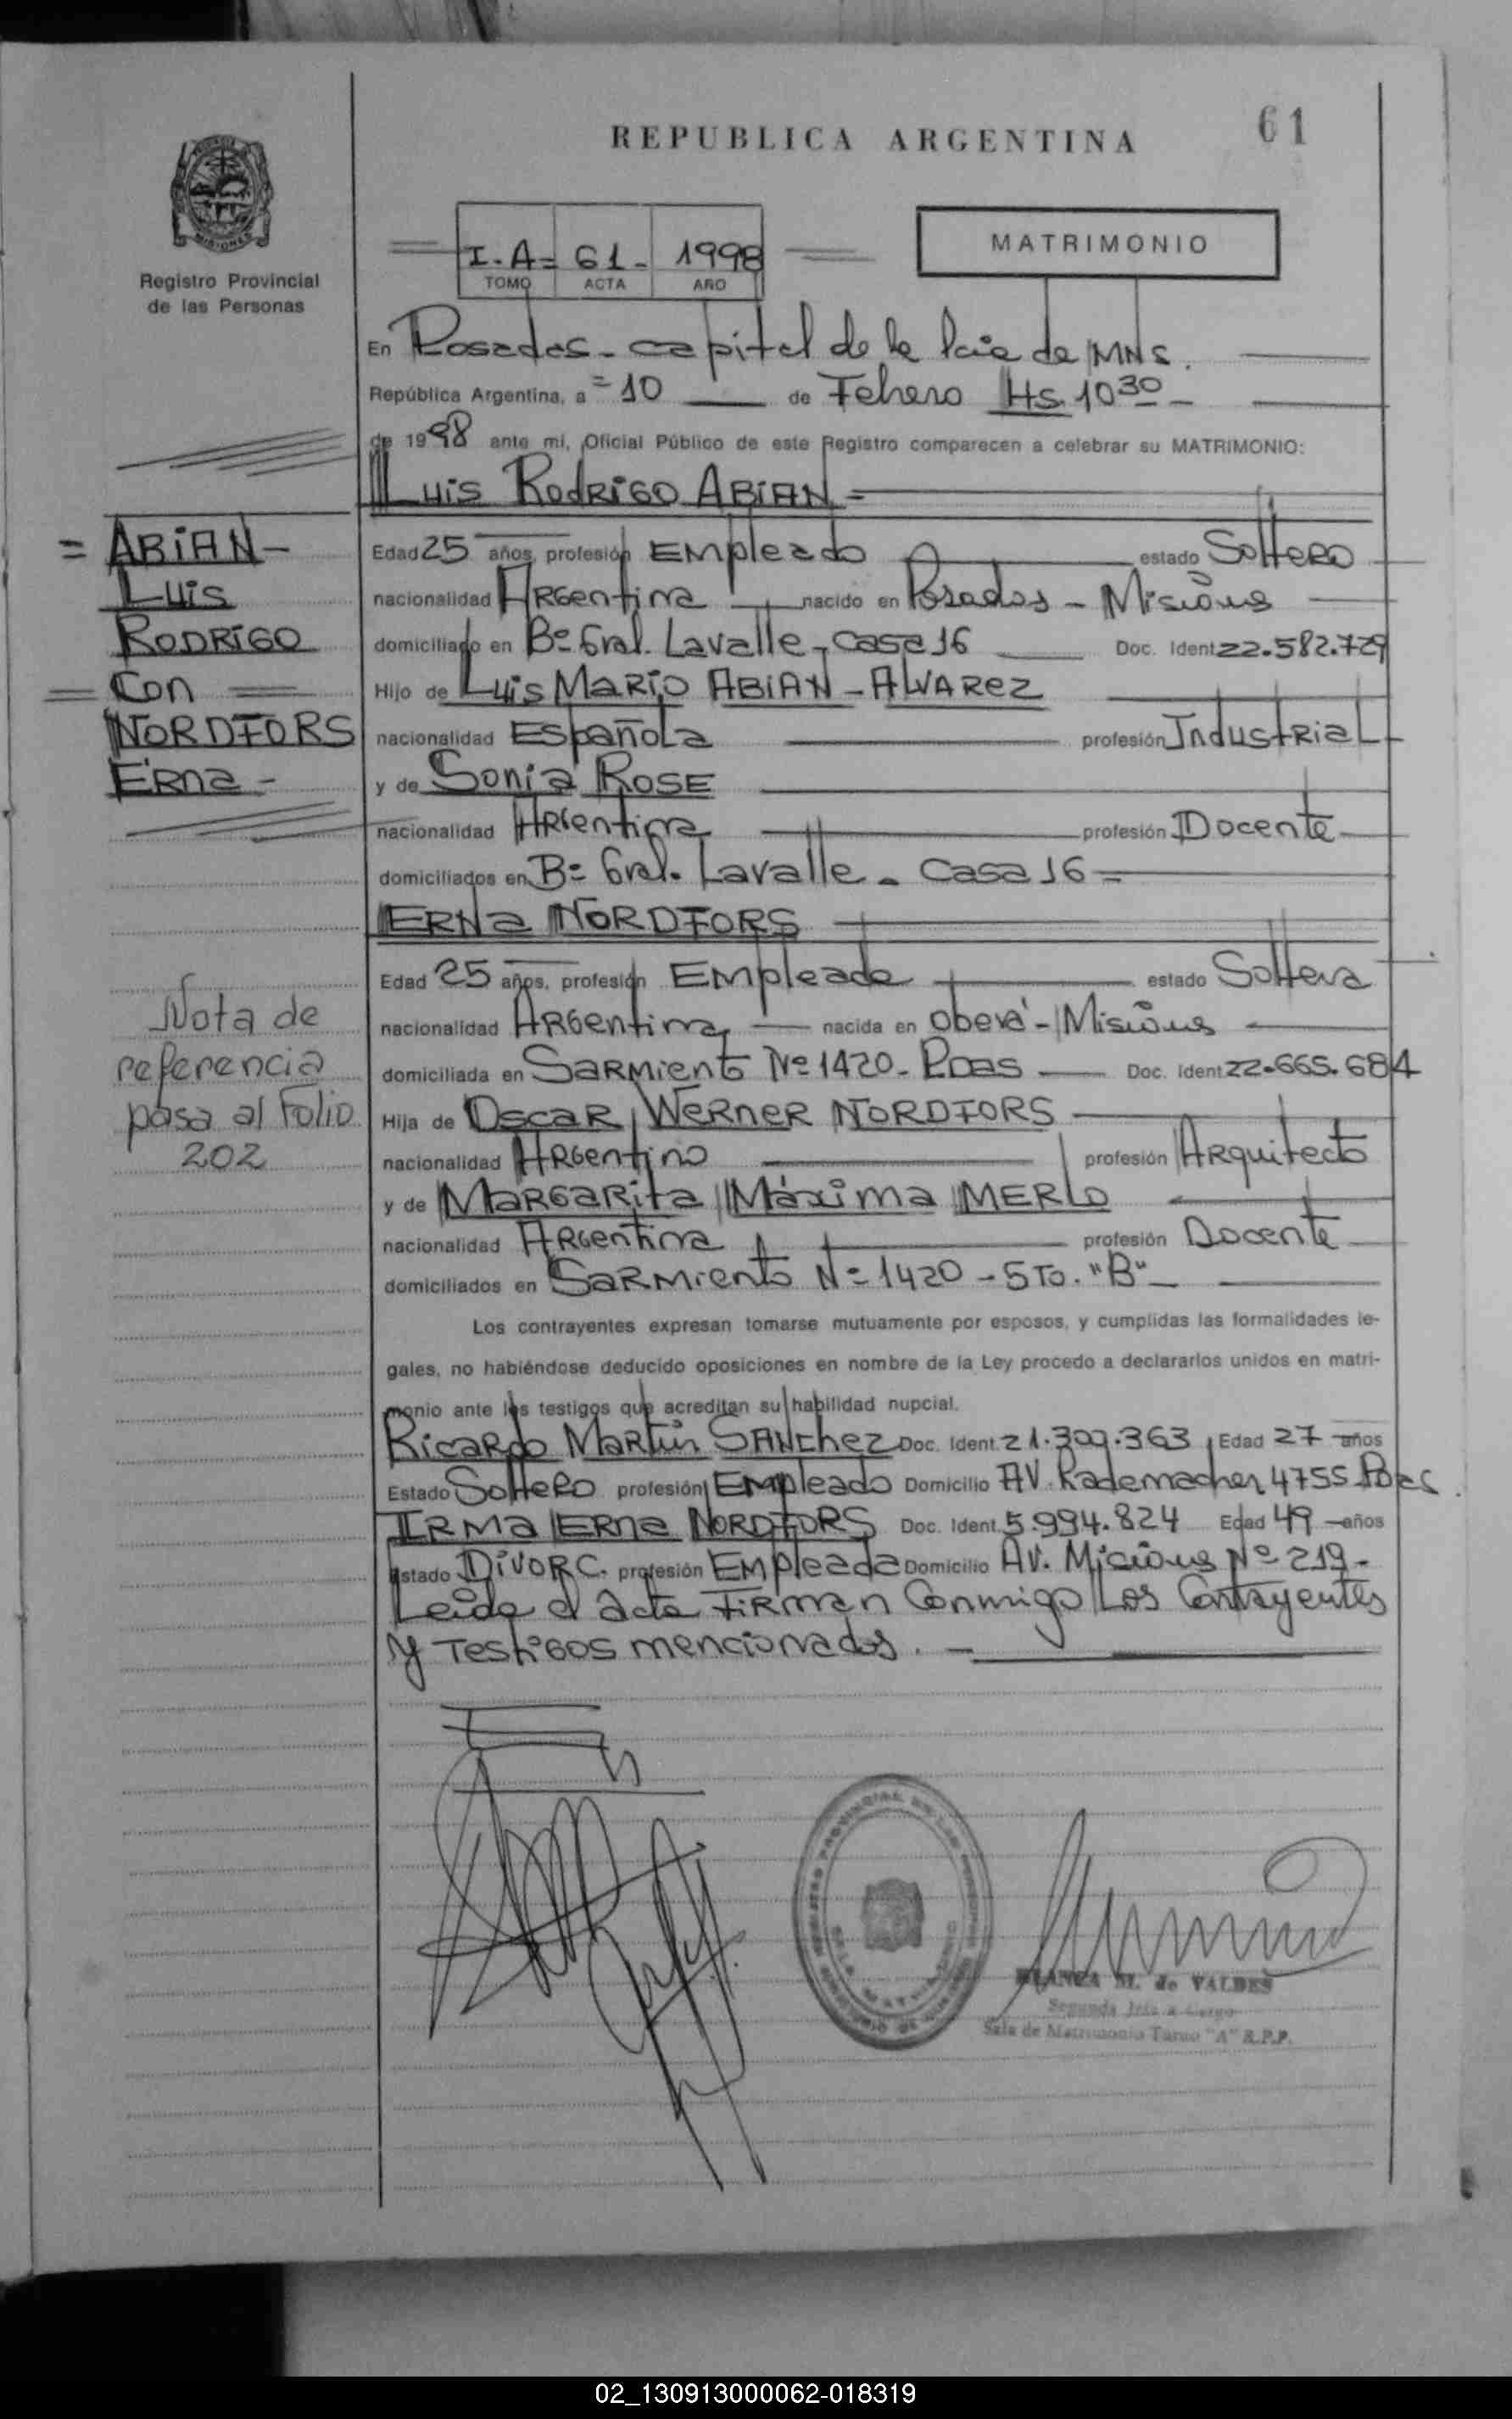 61
REPUBLICA ARGENTINA
MISIONES
Registro Provincial
de las Personas
I.A= 61- 1998
TOMO ACTA AÑO
MATRIMONIO
En Posadas - capital de la Pcia de MNS.
República Argentina, a =10 de Febrero Hs. 10 30 -
de 1998 ante mi, Oficial Público de este Registro comparecen a celebrar su MATRIMONIO:
Luis Rodrigo ABIAN =
= ABIAN -
Luis
RODRIGO
= Con =
NORDFORS
Erna -
Edad 25 años, profesión Empleado estado Soltero
nacionalidad Argentina nacido en Posadas - Misiones
domiciliado en Bº Gral. Lavalle - Casa 16 Doc. Ident 22.582.729
Hijo de Luis Mario ABIAN - ALVAREZ
nacionalidad Española profesión Industrial
y de Sonia ROSE
nacionalidad Argentina profesión Docente
domiciliados en Bº Gral. Lavalle - Casa 16 =
ERNA NORDFORS
Edad 25 años, profesión Empleada estado Soltera
nacionalidad Argentina nacida en Oberá - Misiones
domiciliada en Sarmiento Nº 1420 - Pdas Doc. Ident 22.665.684
Hija de Oscar Werner NORDFORS
nacionalidad Argentino profesión Arquitecto
y de Margarita Máxima MERLO
nacionalidad Argentina profesión Docente
domiciliados en Sarmiento Nº 1420 - 5 TO. "B" -
Nota de
referencia
pasa al Folio
202
Los contrayentes expresan tomarse mutuamente por esposos, y cumplidas las formalidades le-
gales, no habiéndose deducido oposiciones en nombre de la Ley procedo a declararlos unidos en matri-
monio ante los testigos que acreditan su habilidad nupcial.
Ricardo Martín SANchez Doc. Ident. 21.300.363 Edad 27 años
Estado Soltero profesión Empleado Domicilio AV. Rademacher 4755 Pdas.
IRMA Erna NORDFORS Doc. Ident. 5.994.824 Edad 49 - años
Estado DIVORC. profesión Empleada Domicilio AV. Misiones Nº 219 -
Leida el acta Firman Conmigo Los Contrayentes
y Testigos mencionados. -
BLANCA M. de VALDES
Segunda Jefa a Cargo
Sala de Matrimonio Turno "A" R.P.P.
02_130913000062-018319